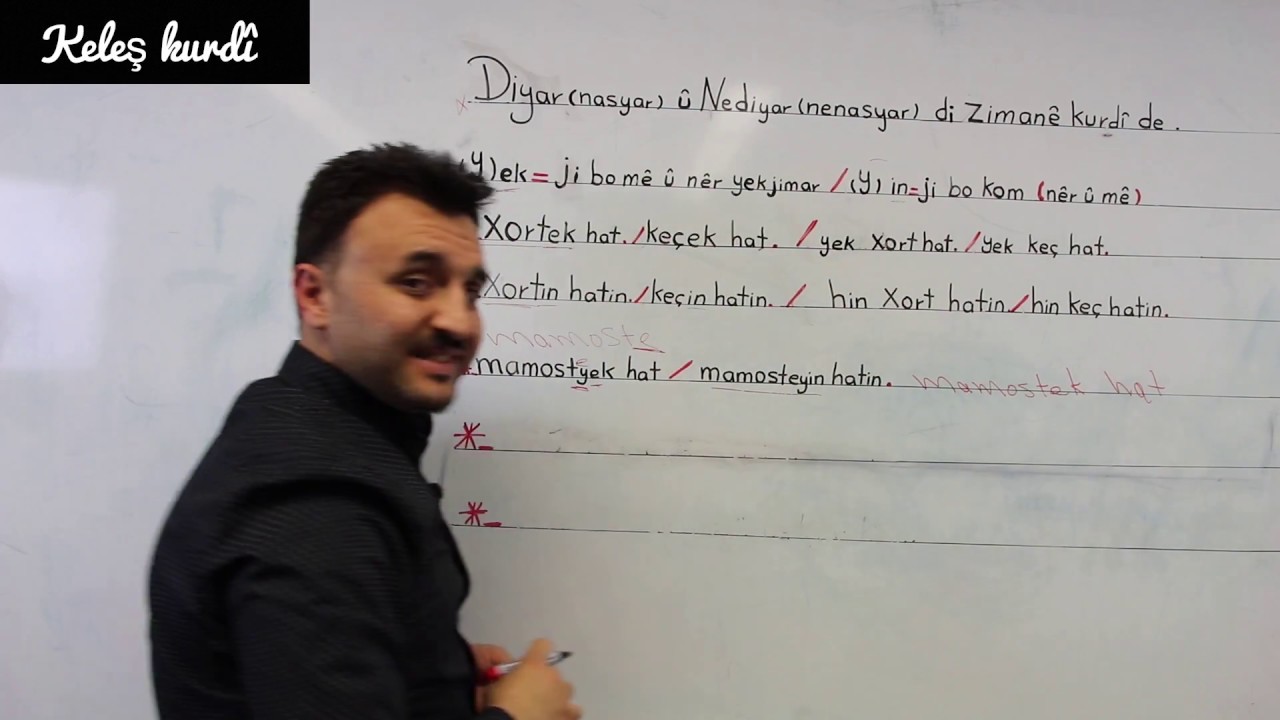 Keleş kurdî
Diyar (nasyar) û Nediyar (nenasyar) di Zimanê kurdî de.
(Y)ek = ji bo mê û nêr yekjimar / (Y) in = ji bo kom (nêr û mê)
Xortek hat. / keçek hat. / yek Xort hat. / yek keç hat.
Xortin hatin. / keçin hatin. / hin Xort hatin / hin keç hatin.
mamoste
mamostyek hat / mamosteyin hatin. mamostek hat
*-
*-